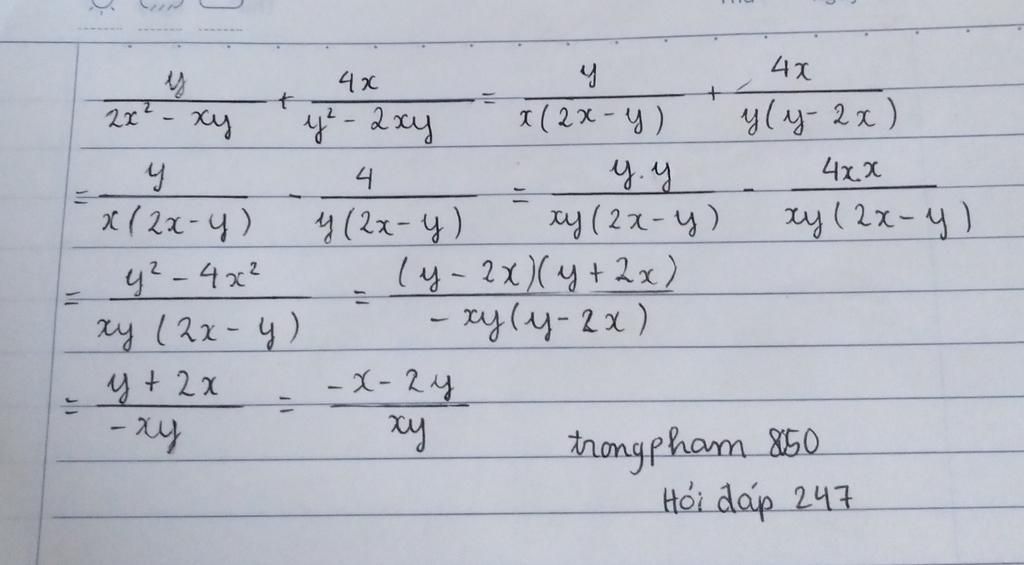 y/(2x² - xy) + 4x/(y² - 2xy) = y/(x(2x-y)) + 4x/(y(y-2x))
= y/(x(2x-y)) - 4/(y(2x-y)) = y.y/(xy(2x-y)) - 4x.x/(xy(2x-y))
= (y² - 4x²)/(xy(2x-y)) = (y-2x)(y+2x)/(-xy(y-2x))
= (y+2x)/(-xy) = (-x-2y)/(xy)
trongpham 850
Hỏi đáp 247